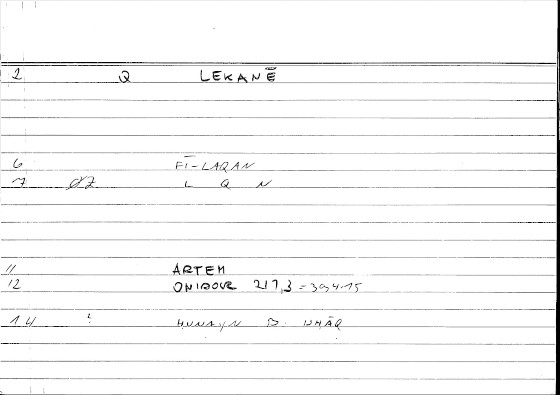 2 Q LEKANĒ
6 FĪ-LAQAN
7 Ø7 L Q N
11 ARTEM
12 ONIROCR 217,3 = 394.15
14 ? ḤUNAYN B. ISḤĀQ